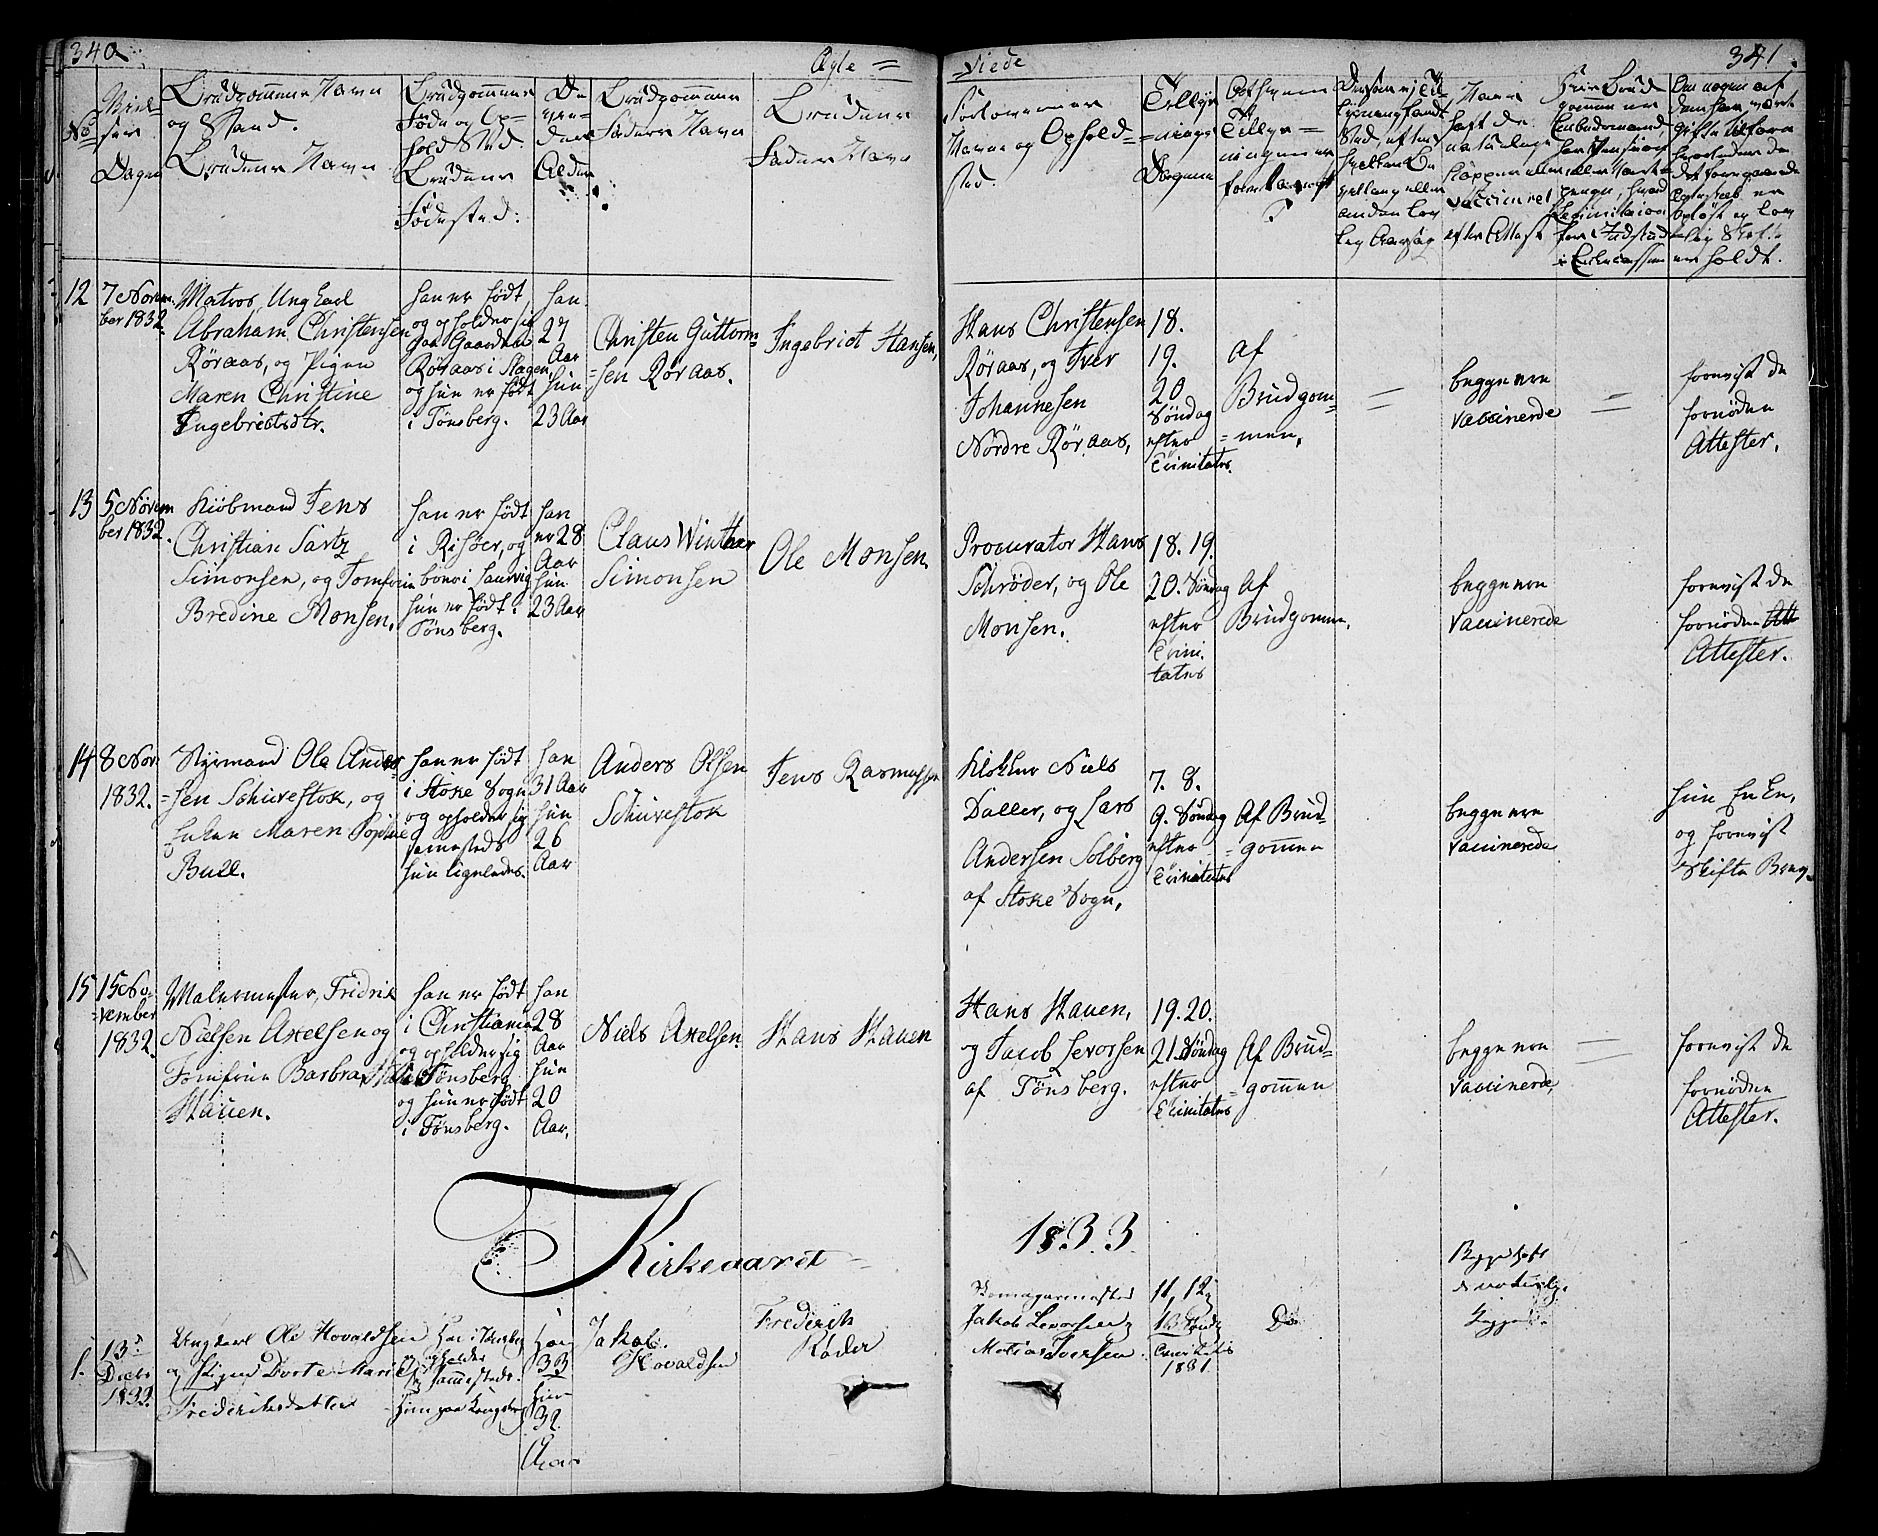 340
Ægte =
viede
341.
No
Viel-
sses
Dagen
Brudgommens Navn
og Stand.
Brudens Navn
Brudgommens
Føde og Op-
hold Sted.
Brudens
Fødested:
De-
res
Alder
Brudgommens
Faders Navn
Brudens
Faders Navn
Forlovernes
Navne og Ophold =
sted.
Tillys
= nings
Dagene
Tillys =
ningen er
12
7 Novem-
ber 1832.
Matros, Ungkarl
Abraham Christensen
Røraas, og Pigen
Maren Christine
Ingebretsdtr.
han er født
og opholder sig
paa Gaarden
Røraas i Slagen,
og hun er født
i Tønsberg.
han
27
Aar
hun
23 Aar
Christen Guttorm=
=sen Røraas.
Ingebrict Hansen,
Hans Christensen
Røraas, og Iver
Johannesen
Nordre Røraas,
18.
19.
20
Søndag
efter
Trinitatis.
af
Brudgom=
= men,
=
begge ere
vaccinerde
=
forevist de
fornødne
Attester.
13
5 Novem
ber 1832.
Kiøbmand Jens
Christian Lartz
Simonsen, og Jomfrue
Bredine Monsen.
han er født
i Risøer, og
boer i Laurvig
hun er født i
Tønsberg.
han
er 28
Aar
hun
23 Aar
Claus Winther
Simonsen
Ole Monsen.
Procurator Hans
Schrøder, og Ole
Monsen.
18. 19.
20. Søndag
efter
Trini-
tates
af
Brudgommen.
begge ere
vaccinerede
forevist de
fornødne Att
Attester.
14
8 Nov.
1832.
Styrmand Ole Ander
=sen Schirestok, og
Enken Maren Sophie
Bull.
han er født
i Stoke Sogn
og opholder sig
sammesteds
hun ligeledes.
han
31 Aar
hun
26
Aar
Anders Olsen
Schirestok
Jens Rasmussen
Klokker Niels
Duller, og Lars
Andersen Solberg
af Stoke Sogn,
7. 8.
9. Søndag
efter
Trinitates
Af Brud=
= gommen
begge ere
vaccinerede
hun Enke,
og forevist
Skifte Brev.
15
15 No=
=vember
1832.
Malermester, Fridrik
Nielsen Axelsen og
Jomfrue Barbra
Hauen.
han er født
i Christiania
og opholder sig
i Tønsberg
og hun er født
i Tønsberg.
han
28
Aar
hun
20
Aar.
Niels Axelsen.
Hans Hauen
Hans Hauen,
og Jacob Levorsen
af Tønsberg.
19. 20.
21. Søndag
efter
Trinitates
Af Brud=
= gommen
begge ere
vaccinerede,
=
forevist de
fornødne
Attester.
Kirkeaaret =
1833.
1.
13d
Decbr
1832.
Ungkarl Ole Hovaldsen
og Pigen Dorte Marie
Frederiksdatter
Han i Tønsberg
og opholder
sig sammesteds.
Hun paa Kongsberg
Han
33
Hun
32
Aar
Jakob
Hovaldsen
Frederik
Røder
Jakob Levorsen og
Matias Iversen.
11, 12,
13 Søndag
Trinitatis
1831.
Do
Begge haft
de naturlige
Kopper.